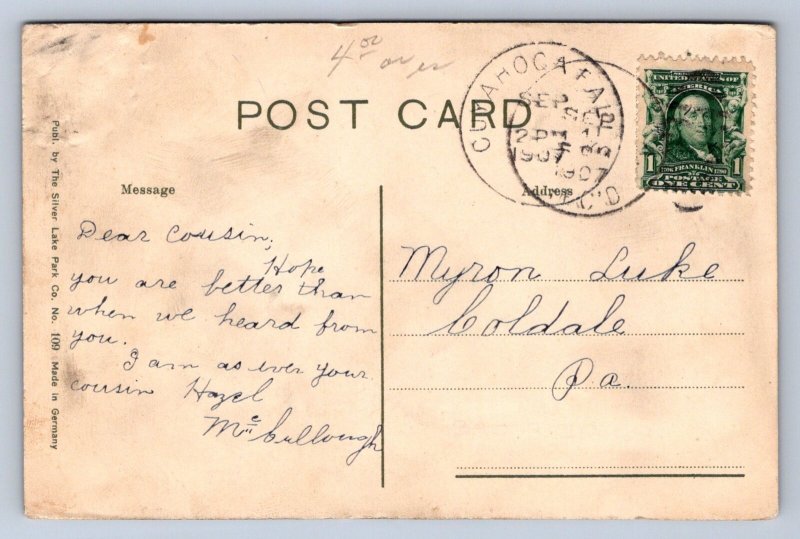 4 00
POST CARD
CUYAHOGA FALLS
SEP
2 PM
1907
1907
REC'D
UNITED STATES OF
AMERICA
1 1
FRANKLIN 1790
POSTAGE
ONE CENT
Message
Address
Publ. by The Silver Lake Park Co. No. 109 Made in Germany
Dear Cousin;
Hope
you are better than
when we heard from
you.
I am as ever your
cousin Hazel
McCullough
Myron Luke
Coldale
Pa.